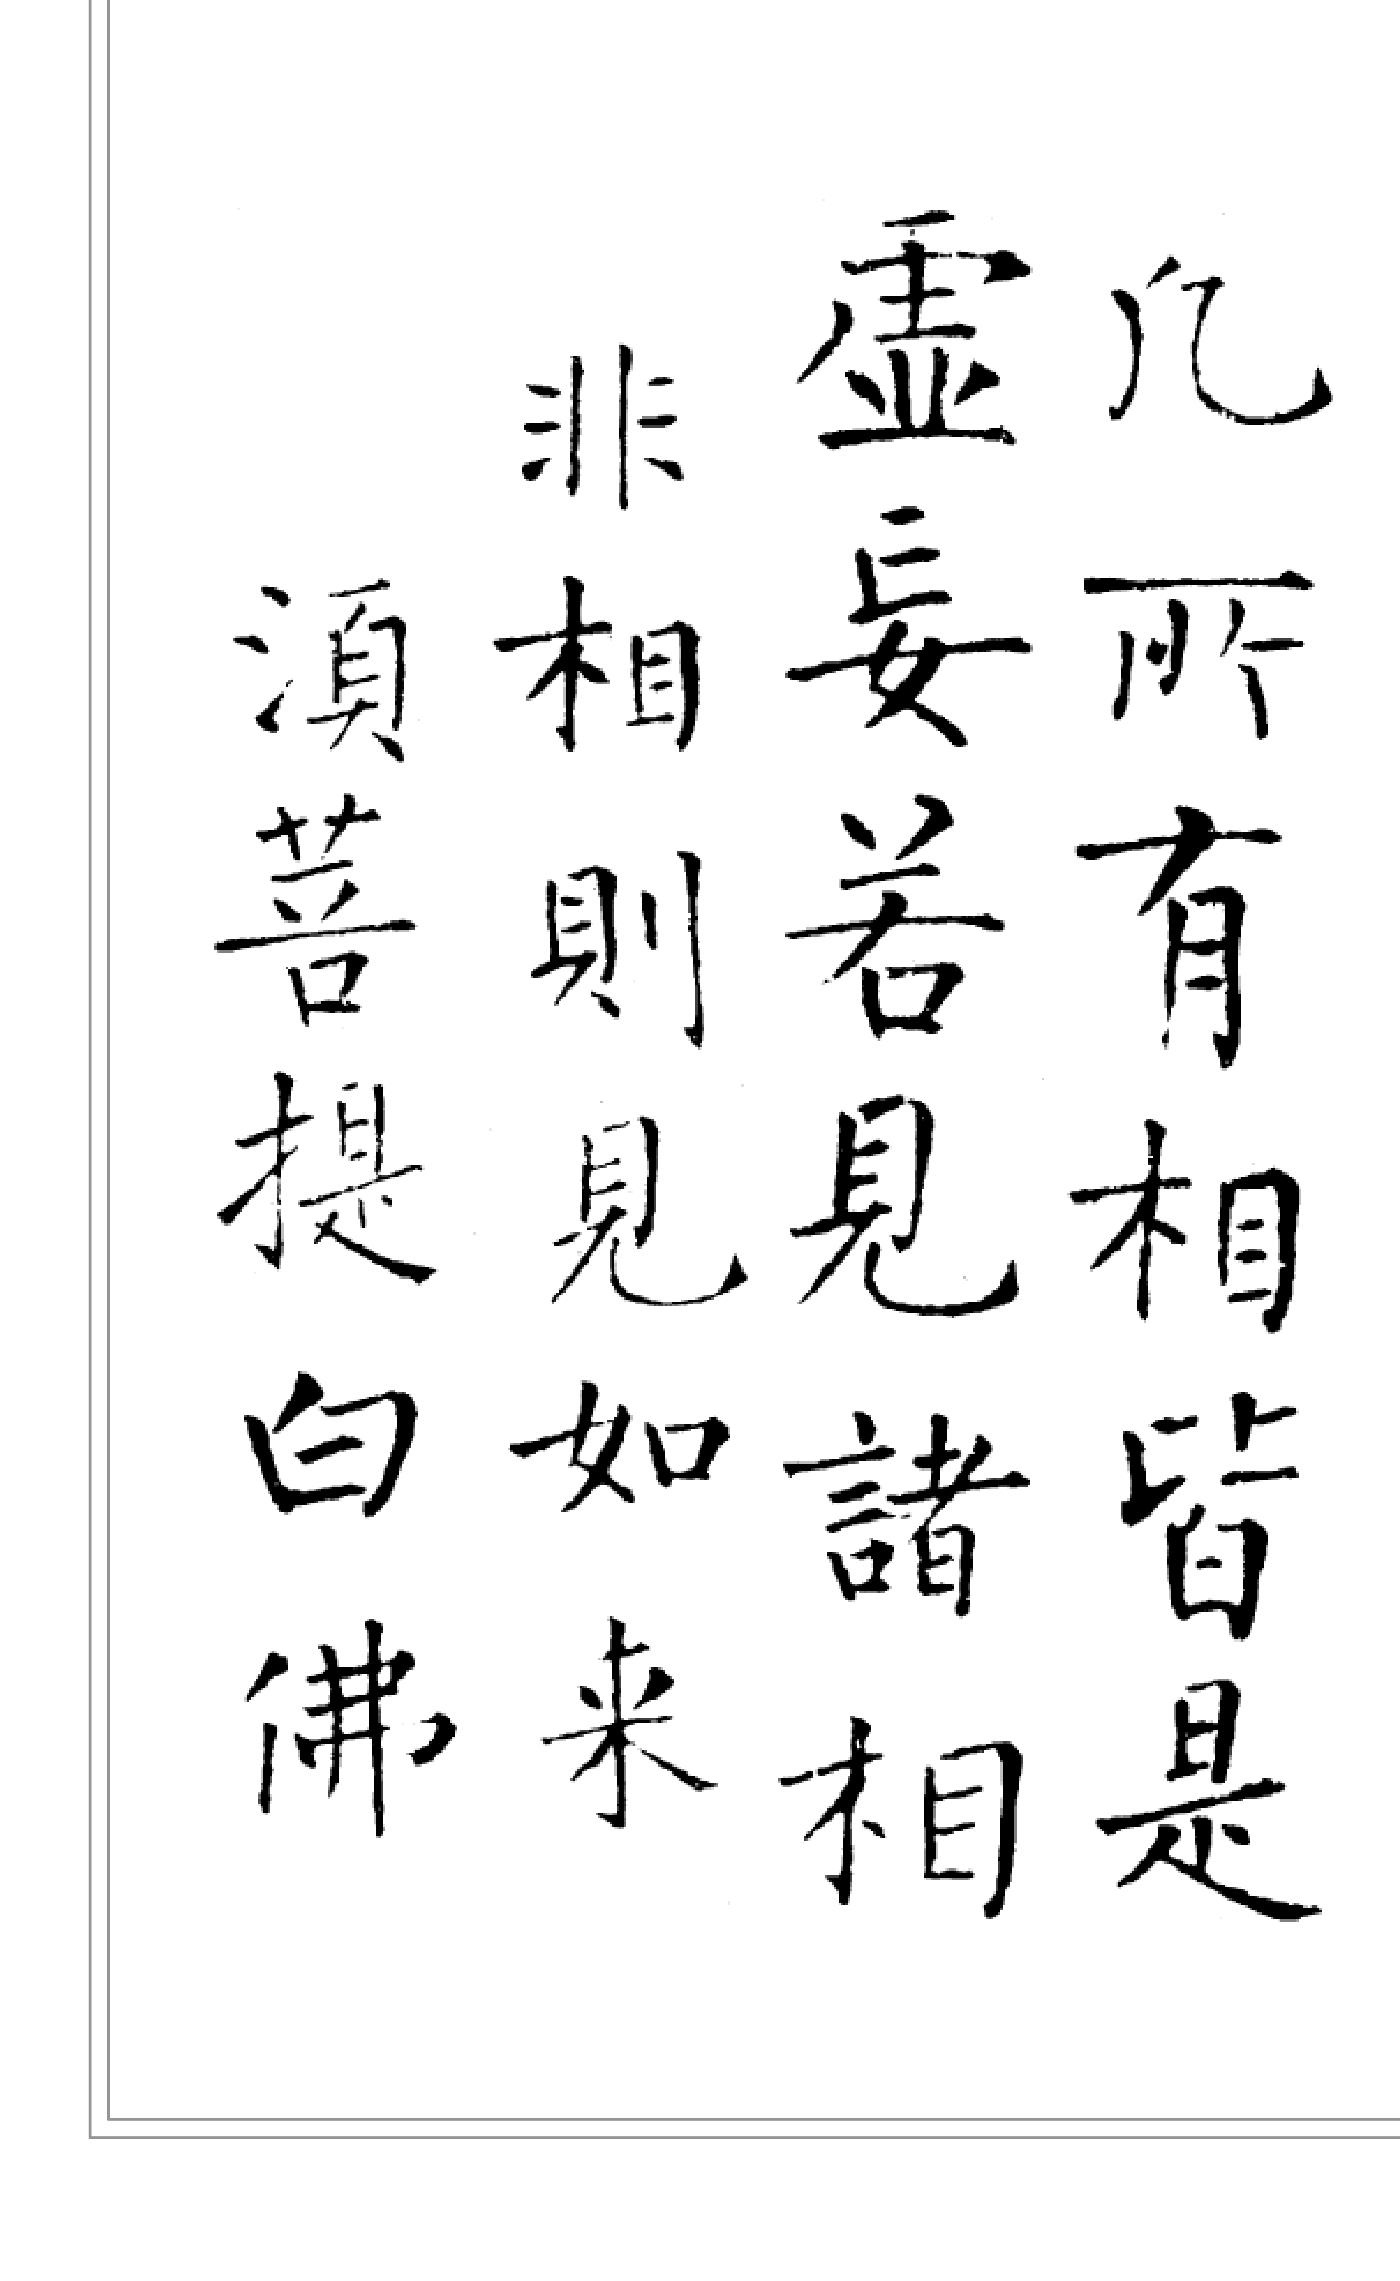 凡所有相皆是
虛妄若見諸相
非相則見如来
須菩提白佛